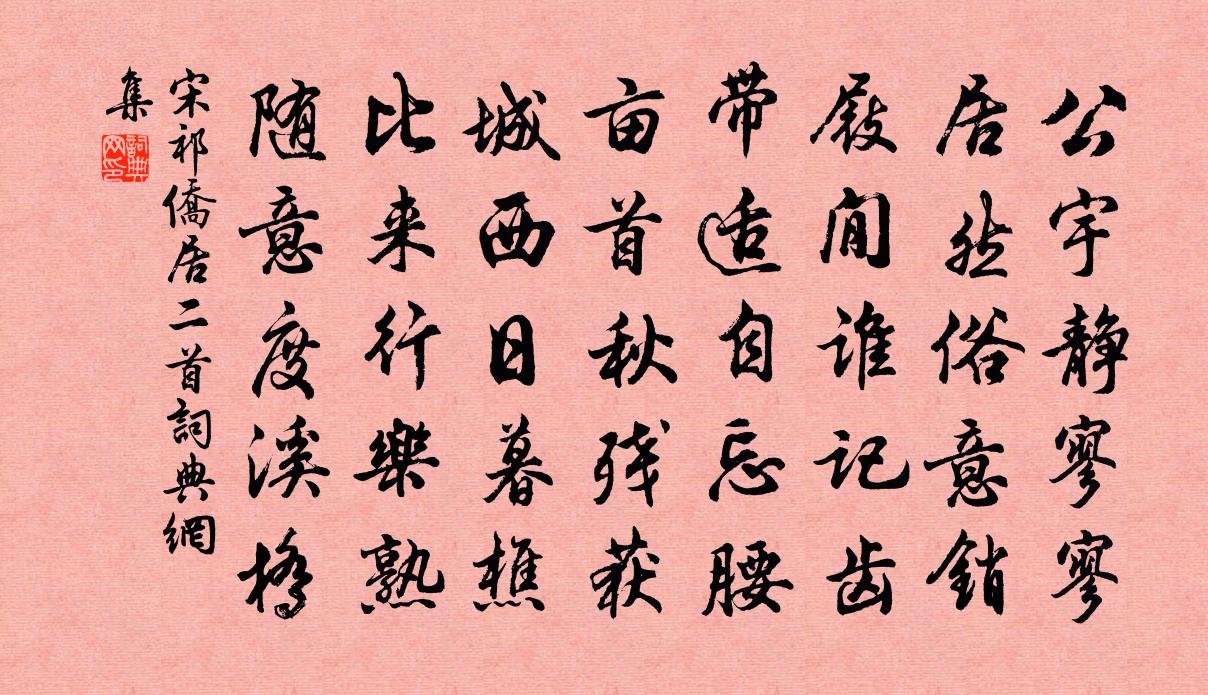 公宇静寥寥
居然俗意銷
屐間谁记齿
带适自忘腰
亩首秋残获
城西日暮樵
比来行樂熟
随意度溪橋
宋祁僑居二首詞典網
集
詞典網印